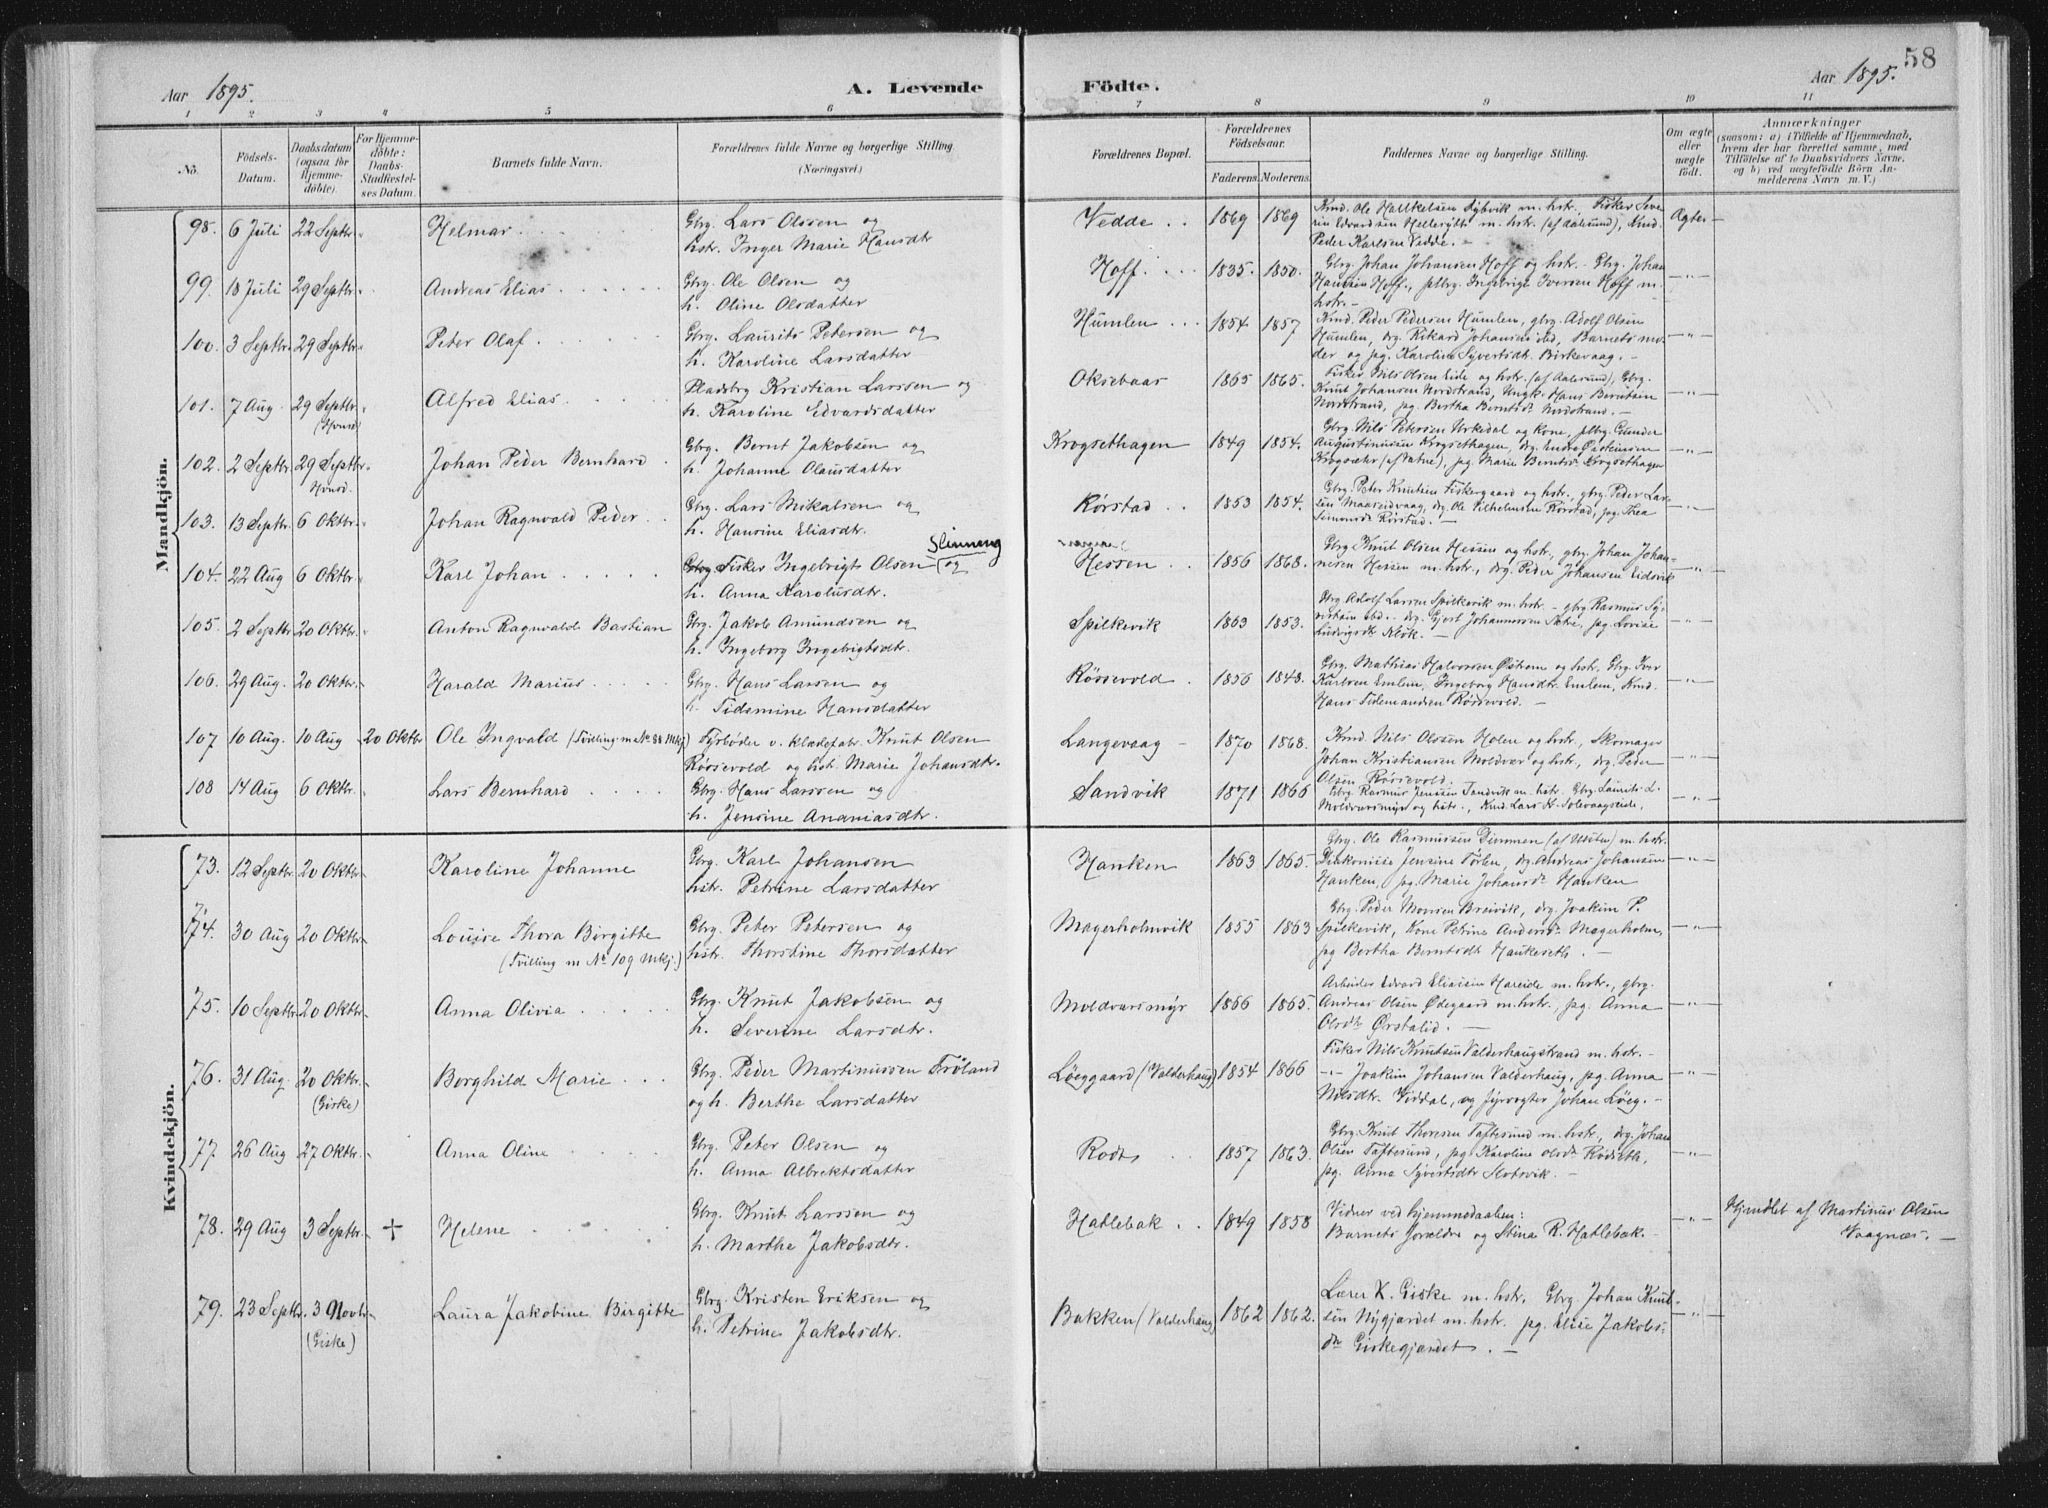 58
Aar 1895. A. Levende Födte. Aar 1895.
1 2 3 4 5 6 7 8 9 10 11
No. Födsels-Datum. Daabsdatum (ogsaa for Hjemme-döbte). For Hjemme-döbte: Daabs-Stadfæstel-ses Datum. Barnets fulde Navn. Forældrenes fulde Navne og borgerlige Stilling. (Næringsvei.) Forældrenes Bopæl. Forældrenes Födselsaar. Faderens. Moderens. Faddernes Navne og borgerlige Stilling. Om ægte eller uægte födt. Anmærkninger
(saasom: a) i Tilfælde af Hjemmedaab,
hvem der har forrettet samme, med
Tilföielse af to Daabsvidners Navne,
og b) ved uægtefödte Börn An-
melderens Navn m. V.)
Mandkjön.
98. 6 Juli 22 Septbr. Helmar Gbrg. Lars Olssen og
hstr. Inger Marie Hansdtr
Vedde 1869 1869 Kmd. Ole m. hstr. Fisker Seve-
rin Edvardsen m. hstr. (af Aalesund), Kmd.
Peder Karlsen Vedde. Ægte
99. 18 Juli 29 Septbr. Andreas Elias Gbrg. Ole Olsen og
h. Oline Olsdatter
Hoff. 1835. 1850. Gbrg. Johan Johansen Hoff og hstr. Gbrg. Johan
Hansen Hoff, Ingebrigt Iversen Hoff m.
hstr. -"-
100. 3 Septbr. 29 Septbr. Peter Olaf Gbrg. Laurits Petersen og
h. Karoline Larsdatter
Humlen 1854 1857 Kmd. Peder Pedersen Humlen, gbrg. Adolf Olsen
Humlen, drg. Rikard Johansen ibd, Barnets mo-
der og pg. Karoline Syvertsdt. Birkevaag. -"-
101. 7 Aug. 29 Septbr. Alfred Elias Pladsbrg Kristian Larssen og
h. Karoline Edvardsdatter
Oksebaas 1865 1865. Fisker Nils Olsen Eide og hstr. (af Aalesund), Gbrg.
Knut Johansen Nordstrand, Ungk. Hans Berntsen
Nordstrand, pg. Bertha Berntsdt Nordstrand. -"-
102. 2 Septbr. 29 Septbr. Johan Peder Bernhard Gbrg. Bernt Jakobsen og
h. Johanne Olausdatter
Krogsethagen 1849 1854. Gbrg. Nils Petersen Urkedal og Kone, Gunder
Augustinusen Krogsethagen, drg. Endre Øisteinsen
Krogsæter (af Vatne), pg. Marie Berntsd. Krogsethagen -"-
103. 13 Septbr. 6 Oktbr. Johan Ragnvald Peder Gbrg. Lars Mikalsen og
h. Hansine Eliasdtr.
Rørstad 1853 1854. Gbrg. Peter Knutsen Fiskergaard og hstr., gbrg. Peder Lar-
sen Maaseidvaag, drg. Ole Vilhelmsen Rørstad, pg. Thea
Simonsdt Rørstad. -"-
104. 22 Aug 6 Oktbr. Karl Johan Gbrg Fisker Ingebrigt Olsen (Slinning) og
h. Anna Karolusdtr.
Hessen 1856 1868. Gbrg Knut Olsen Hessen og hstr., gbrg. Johan Johan-
nesen Hessen m. hstr., drg. Peder Johansen Eidsvik -"-
105. 2 Septbr 20 Oktbr. Anton Ragnvald Bastian Gbrg. Jakob Amundsen og
h. Ingeborg Ingebrigtsdtr.
Spilkevik 1863 1853. Gbrg Adolf Larsen Spilkevik m. hstr. gbrg Rasmus
ibd. drg. Gjert Johannessen pg. Lovise
Ludvigsdt -"-
106. 29 Aug. 20 Oktbr. Harald Marius Gbrg. Hans Larsen og
h. Tidemine Hansdatter
Røssevold 1856 1848. Gbrg. Mathias Halvorsen og hstr. Gbrg. Iver
Karlsen Emlem, Ingeborg Hansdtr. Emlem, Kmd.
Hans Tidemandsen Røssevold. -"-
107 10 Aug. 10 Aug 20 Oktbr Ole Ingvald (Tvilling m No 88 Mkj) Fyrbøder v. klædefabr. Knut Olsen
Røssevold og hstr. Marie Johansdtr.
Langevaag 1870 1868. Kmd. Nils Olssen Holen og hstr., Skomager
Johan Kristiansen Moldvær og hstr., drg. Peder
Olsen Røssevold. -"-
108 14 Aug 6 Oktbr. Lars Bernhard Gbrg. Hans Larssen og
h. Jensine Ananiasdtr.
Sandvik 1871 1866 Gbrg. Rasmus Jenssen Sandvik m. hstr. Gbrg. Laurits L.
Moldværsmyr og hstr., Kmd. Lars H. Solevaagseide, -"-
Kvindekjön.
73. 12 Septbr. 20 Oktbr. Karoline Johanne Gbrg. Karl Johansen
hstr. Petrine Larsdatter
Hanken 1863 1865. Gbrg. Ole Rasmussen Dimmen m. hstr.
Diakonisse Jensine drg. Andreas Johansen
Hanken, pg. Marie Johansdt Hanken -"-
74. 30 Aug 20 Oktbr. Louise Thora Birgitte
(Tvilling m No 109 Mkj.) Gbrg. Peter Petersen og
hstr. Thorstine Thorsdatter
Magerholmvik 1855 1863 Gbrg. Peder Monsen Breivik, drg. Joakim P.
Spilkevik, Kone Petrine Andersdt. Magerholm,
pg Bertha Berntsdt Haukeseth. -"-
75. 10 Septbr. 20 Oktbr. Anna Olivia Gbrg. Knut Jakobsen og
h. Severine Larsdtr.
Moldværsmyr 1866 1865. Arbeider Edvard Eliassen Hareide m. hstr., gbrg.
Andreas Olsen Ødegaard m. hstr., pg. Anna
Olsdt Ørstalid. -"-
76. 31 Aug. 20 Oktbr. (Giske) Borghild Marie Gbrg. Peder Martinussen Frøland
og h. Berthe Larsdatter
Løeggaard (Valderhaug) 1854 1866 Fisker Nils Knutsen Valderhaugstrand m. hstr.
-"- Joakim Johansen Valderhaug, pg. Anna
Nilsdtr. Viddal, og fyrvogter Johan Løeg. -"-
77. 26 Aug 27 Oktbr. Anna Oline Gbrg. Peter Olsen og
h. Anna Albrektsdatter
1857 1863. Gbrg. Knut Thoresen Taftesund m. hstr., drg. Johan
Olsen Taftesund, pg Karoline Olsdt Rødseth,
pg. Anna Syvertsdtr Slotsvik. -"-
78. 29 Aug 3 Septbr. + Helene Gbrg. Knut Larssen og
h. Marthe Jakobsdtr.
Hatlebak 1849 1858 Vidner ved hjemmedaaben:
Barnets forældre og Stina R. Hatlebak. -"- Hjmdbt af Martinus Olsen
Vaagnæs.
79. 23 Septbr. 3 Novbr (Giske) Laura Jakobine Birgitte Gbrg. Kristen Eriksen og
h. Petrine Jakobsdtr.
Bakken (Valderhaug) 1862 1862. Lærer K. Giske m. hstr. Gbrg. Johan Knut-
sen Nygjærdet m. hstr. pg. Elise Jakobs-
dtr Giskegjærdet. -"-